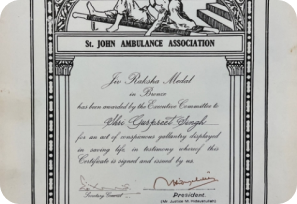 St. JOHN AMBULANCE ASSOCIATION
Jiv Raksha Medal
in Bronze
has been awarded by the Executive Committee to
Shri Gurpreet Singh
for an act of conspicuous gallantry displayed
in saving life, in testimony whereof this
Certificate is signed and issued by us.
Secretary General
President.